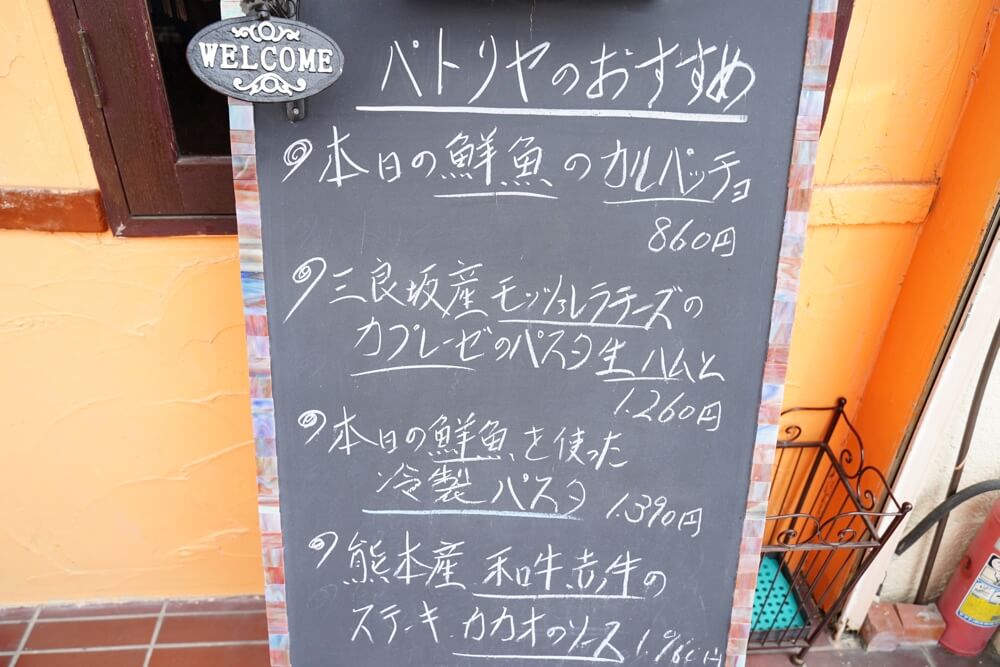 WELCOME
パトリヤのおすすめ
本日の鮮魚のカルパッチョ
860円
三良坂産モッツァレラチーズの
カプレーゼのパスタ生ハムと
1.260円
本日の鮮魚を使った
冷製パスタ 1.390円
熊本産 和牛赤牛の
ステーキ カカオのソース 1.960円